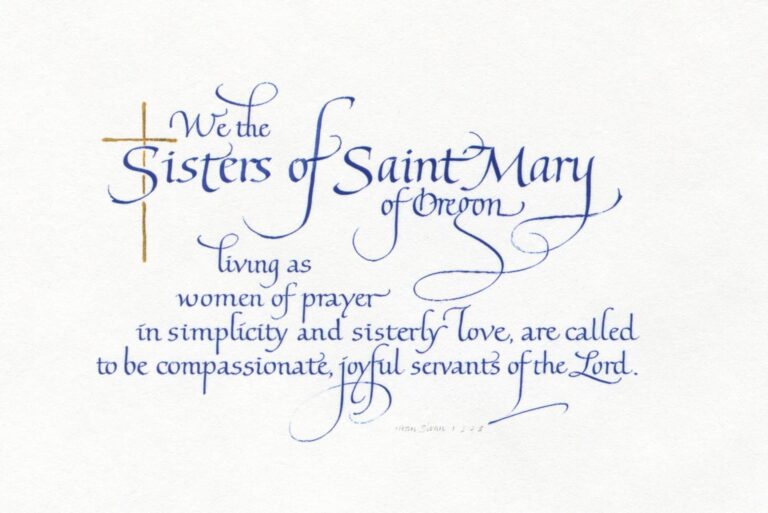 We the
Sisters of Saint Mary
of Oregon
living as
women of prayer
in simplicity and sisterly love, are called
to be compassionate, joyful servants of the Lord.